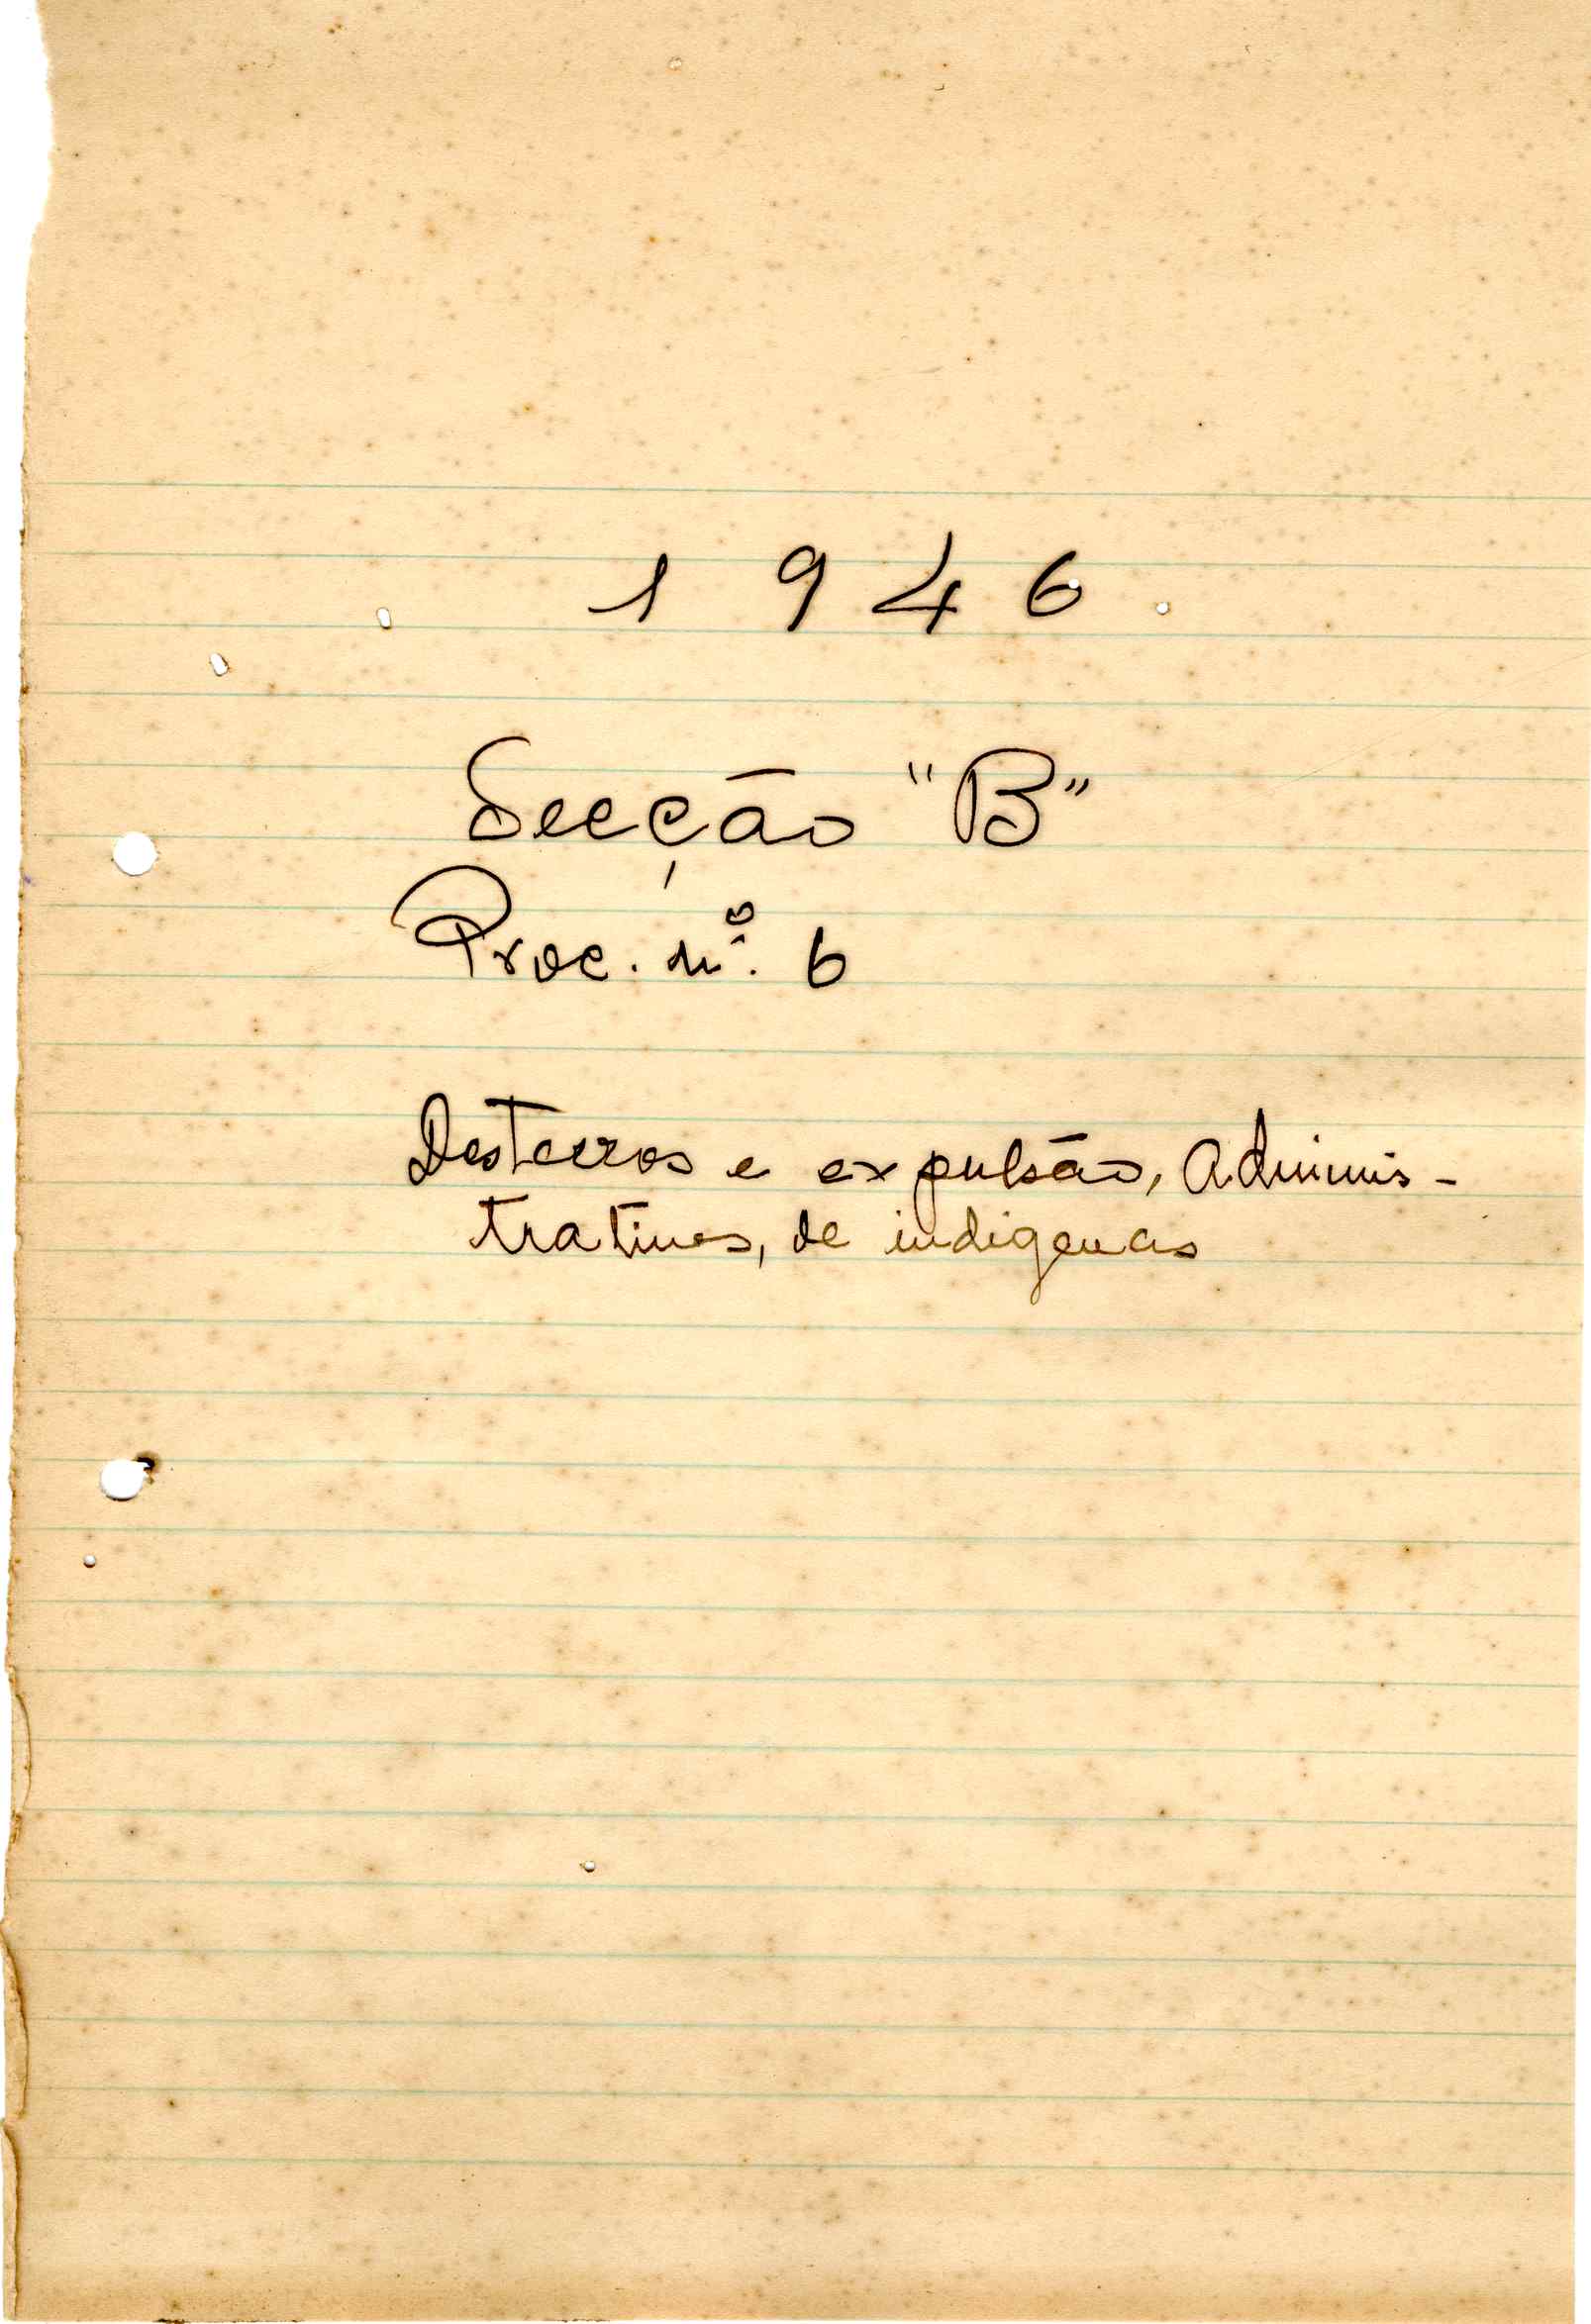 1946.
Secção "B"
Proc. nº. 6
Desterros e expulsão, Adminis-
trativos, de indigenas